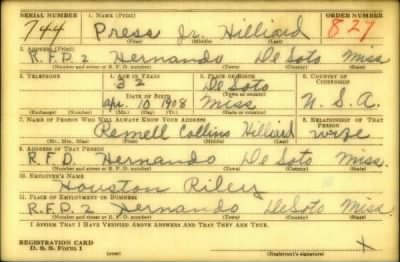 SERIAL NUMBER 1. NAME (Print) ORDER NUMBER
744 Press Jr. Hilliard 827
(First) (Middle) (Last)
2. ADDRESS (Print)
R.F.D. 2 Hernando De Soto Miss
(Number and street or R. F. D. number) (Town) (County) (State)
3. TELEPHONE 4. AGE IN YEARS 5. PLACE OF BIRTH 6. COUNTRY OF CITIZENSHIP
32 De Soto
DATE OF BIRTH
Apr. 10 1908 Miss U.S.A.
7. NAME OF PERSON WHO WILL ALWAYS KNOW YOUR ADDRESS 8. RELATIONSHIP OF THAT PERSON
Remell Collins Hilliard wife
(Mr., Mrs., Miss) (First) (Middle) (Last)
9. ADDRESS OF THAT PERSON
R.F.D. Hernando De Soto Miss.
(Number and street or R. F. D. number) (Town) (County) (State)
10. EMPLOYER'S NAME
Houston Riley
11. PLACE OF EMPLOYMENT OR BUSINESS
R.F.D. 2 Hernando DeSoto Miss.
(Number and street or R. F. D. number) (Town) (County) (State)
I AFFIRM THAT I HAVE VERIFIED ABOVE ANSWERS AND THAT THEY ARE TRUE.
REGISTRATION CARD
D. S. S. Form 1 X
(over) (Registrant's signature)